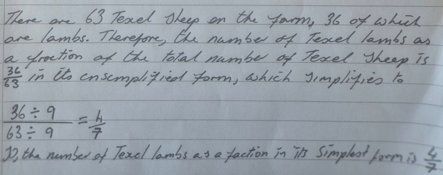 There are 63 Texel sheep on the farm, 36 of which
are lambs. Therefore, the number of Texel lambs as
a fraction of the total number of Texel sheep is
36/63 in its unsimplified form, which simplifies to
36 ÷ 9 / 63 ÷ 9 = 4/7
So, the number of Texel lambs as a faction in its simplest form is 4/7